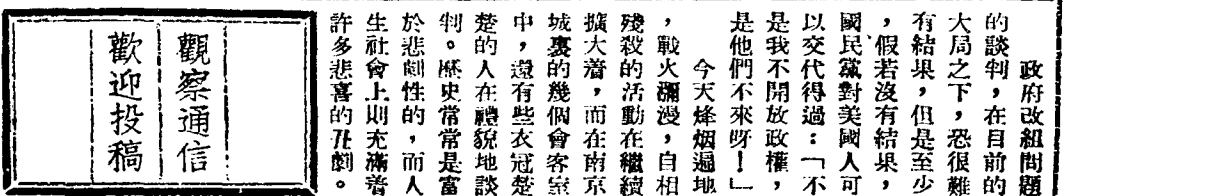 政府改組問題
的談判，在目前的
大局之下，恐很難
有結果，但是至少
，假若沒有結果，
國民黨對美國人可
以交代得過：「不
是我不開放政權，
是他們不來呀！」
今天烽烟遍地
，戰火瀰漫，自相
殘殺的活動在繼續
擴大着，而在南京
城裏的幾個會客室
中，還有些衣冠楚
楚的人在禮貌地談
判。歷史常常是富
於悲劇性的，而人
生社會上則充滿着
許多悲喜的丑劇。
觀察通信
歡迎投稿